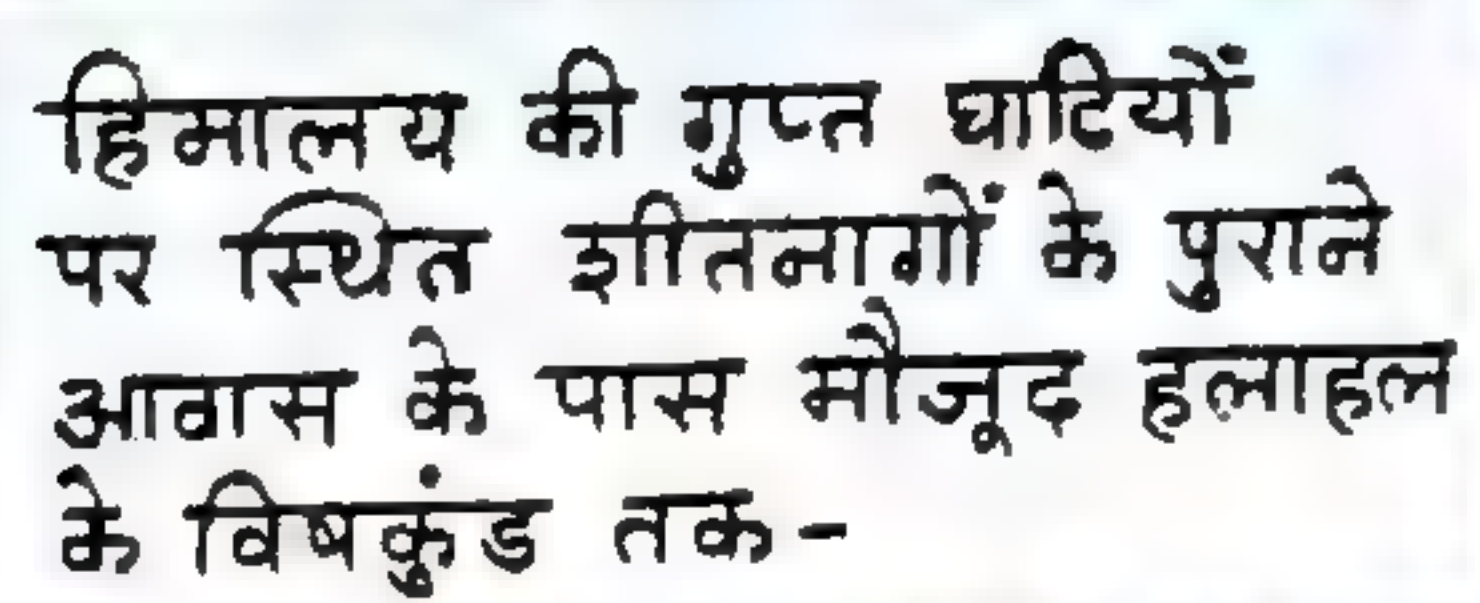 हिमालय की गुप्त घाटियों
पर स्थित शीतनागों के पुराने
आवास के पास मौजूद हलाहल
के विषकुंड तक-